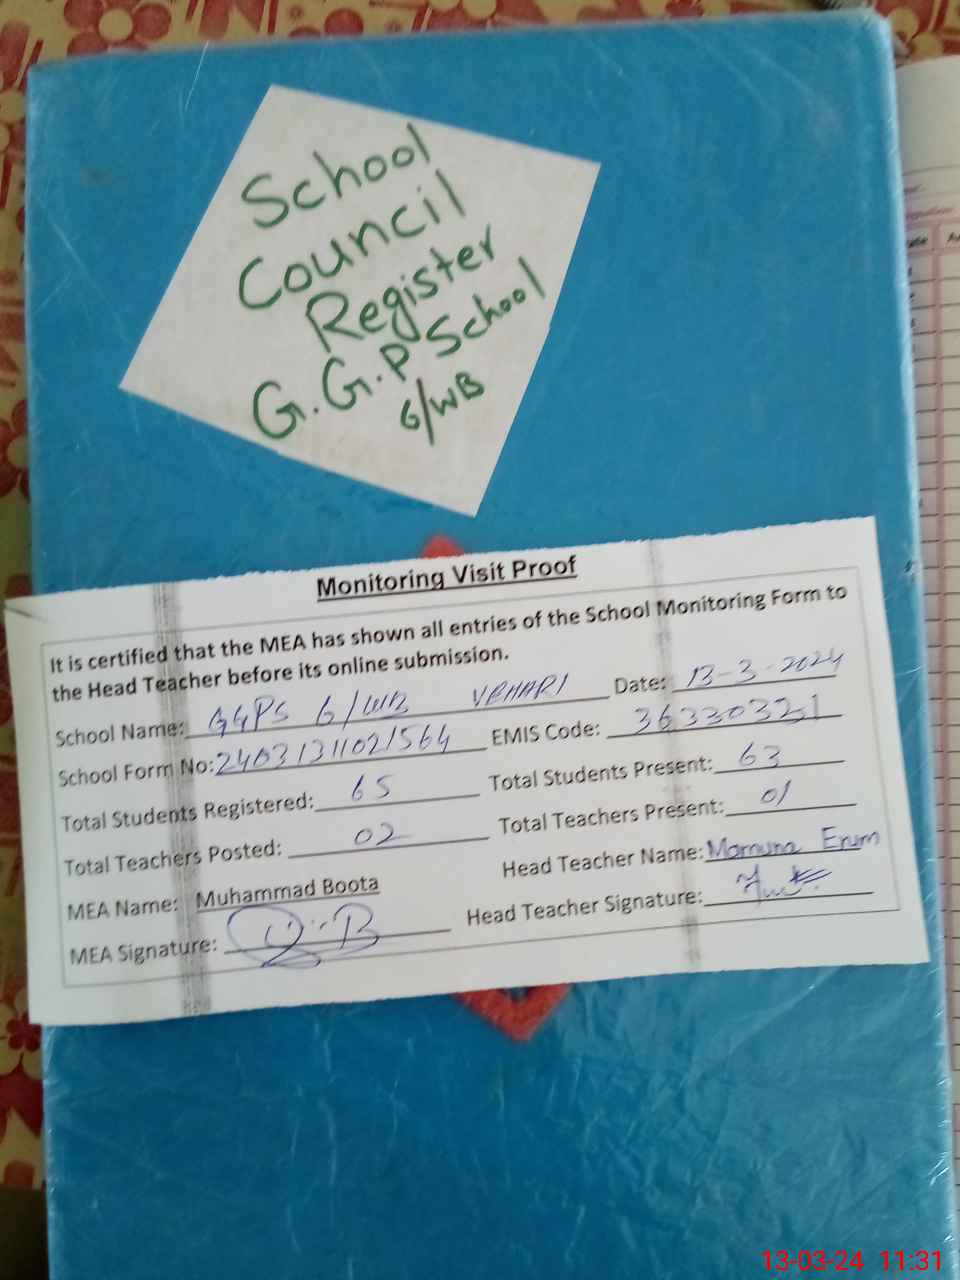 School
Council
Register
G.G.P School
6/WB
Monitoring Visit Proof
It is certified that the MEA has shown all entries of the School Monitoring Form to
the Head Teacher before its online submission.
School Name: GGPS 6/WB VEHARI Date: 13-3-2024
School Form No: 24031311021564 EMIS Code: 36330321
Total Students Registered: 65 Total Students Present: 63
Total Teachers Posted: 02 Total Teachers Present: 01
MEA Name: Muhammad Boota Head Teacher Name: Mamuna Erum
MEA Signature: Head Teacher Signature:
13-03-24 11:31